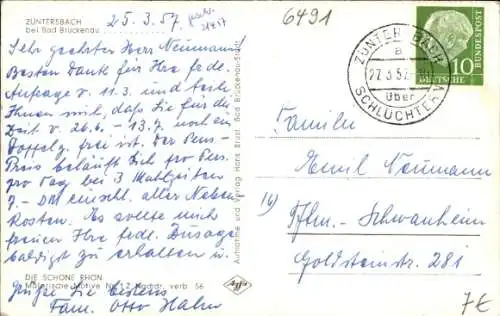 ZÜNTERSBACH
bei Bad Brückenau
25.3.57
6491
Sehr geehrter Herr Neumann!
Besten Dank für Ihre frdl.
Anfrage v 11.3. und teile
Ihnen mit, daß für die
Zeit v. 26.6. - 13.7. noch ein
Doppelz. frei ist. Der Pens.-
Preis beläuft sich pro Pers.
pro Tag bei 3 Mahlzeiten
7.- DM einschl. aller Neben-
kosten. Es sollte mich
freuen Ihre frdl. Zusage
baldigst zu erhalten u.
DIE SCHÖNE RHÖN
Malerische Motive Nachdr. verb 56
grüße Sie bestens
Fam. Otto Hahn
Aufnahme und Verlag Hans Bad Brückenau-Stadt
Agfa
ZÜNTERSBACH
a
27.3.57
über
SCHLÜCHTERN
DEUTSCHE BUNDESPOST
10
Familie
Emil Neumann
16) Ffm.- Schwanheim
Goldsteinstr. 281
7€